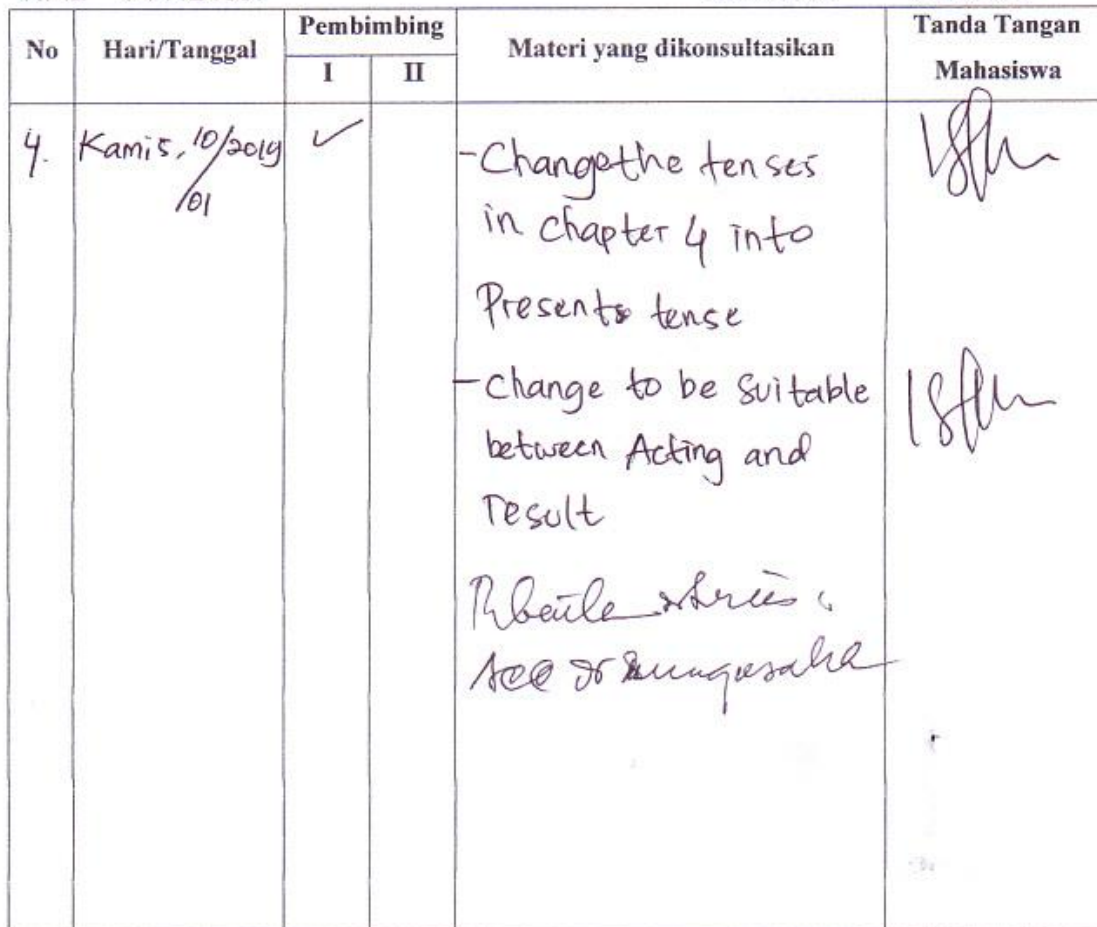 No Hari/Tanggal Pembimbing Materi yang dikonsultasikan Tanda Tangan Mahasiswa
I II
4. Kamis, 10/2019 ✓ -Change the tenses
/01
in chapter 4 into
Presents tense
-Change to be suitable
between Acting and
result
Acc